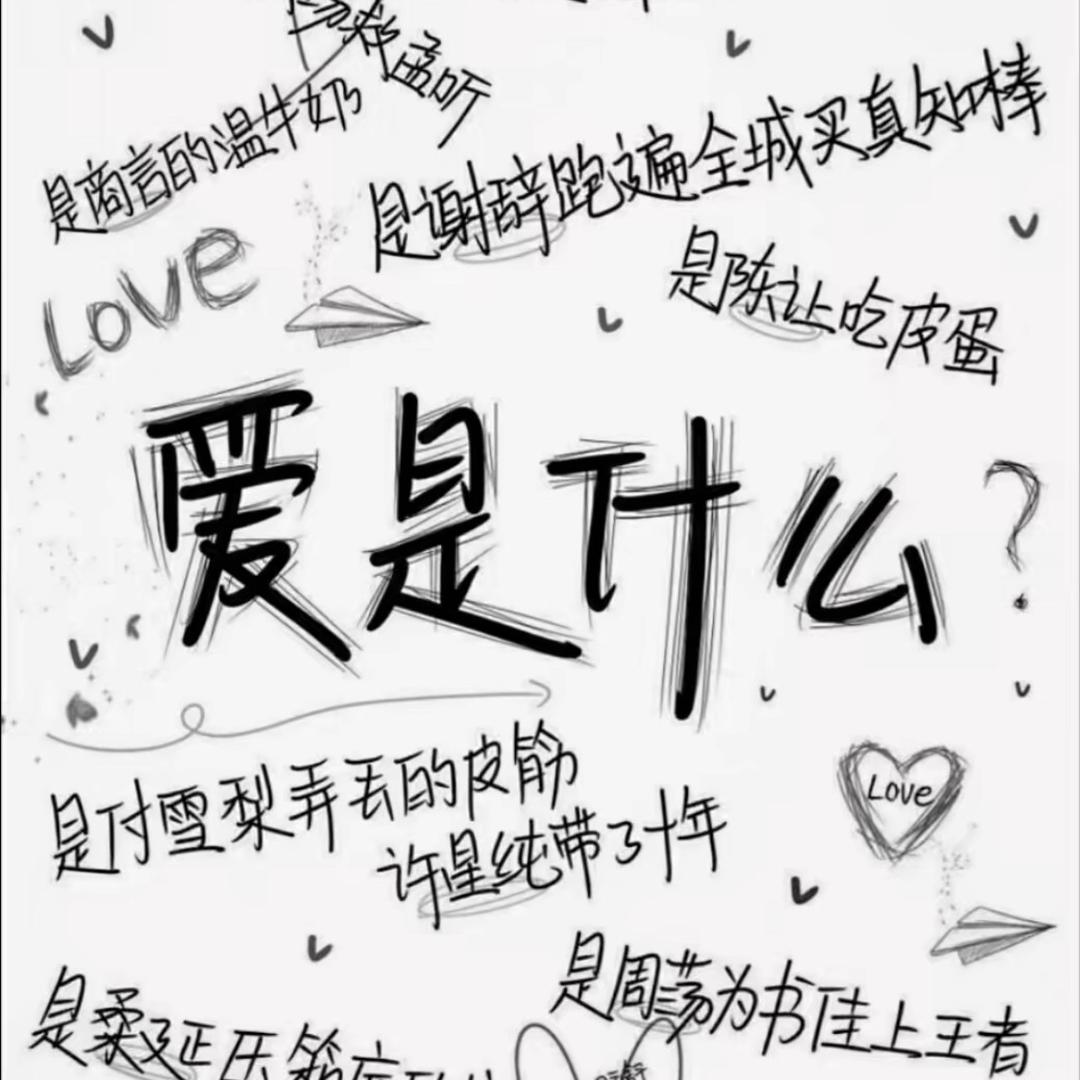 孟听
是商言的温牛奶
是谢辞跑遍全城买真知棒
Love
是陈让吃皮蛋
爱是什么?
是付雪梨弄丢的皮筋
许星纯带了十年
Love
是周荡为书佳上王者
是柔延